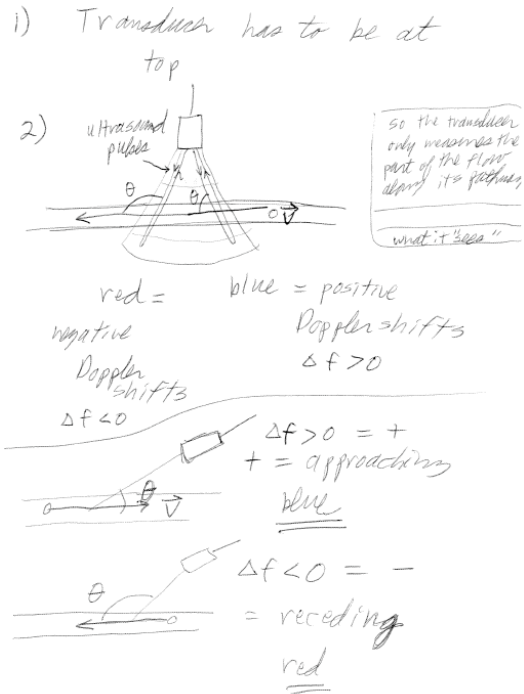 1) Transducer has to be at
top
2) ultrasound
pulses
θ
θ
V
so the transducer
only measures the
part of the flow
along its pathway
what it "sees"
red =
negative
Doppler
shifts
Δf<0
blue = positive
Doppler shifts
Δf>0
Δf>0 = +
+ = approaching
blue
θ
V
Δf<0 = -
= receding
red
θ